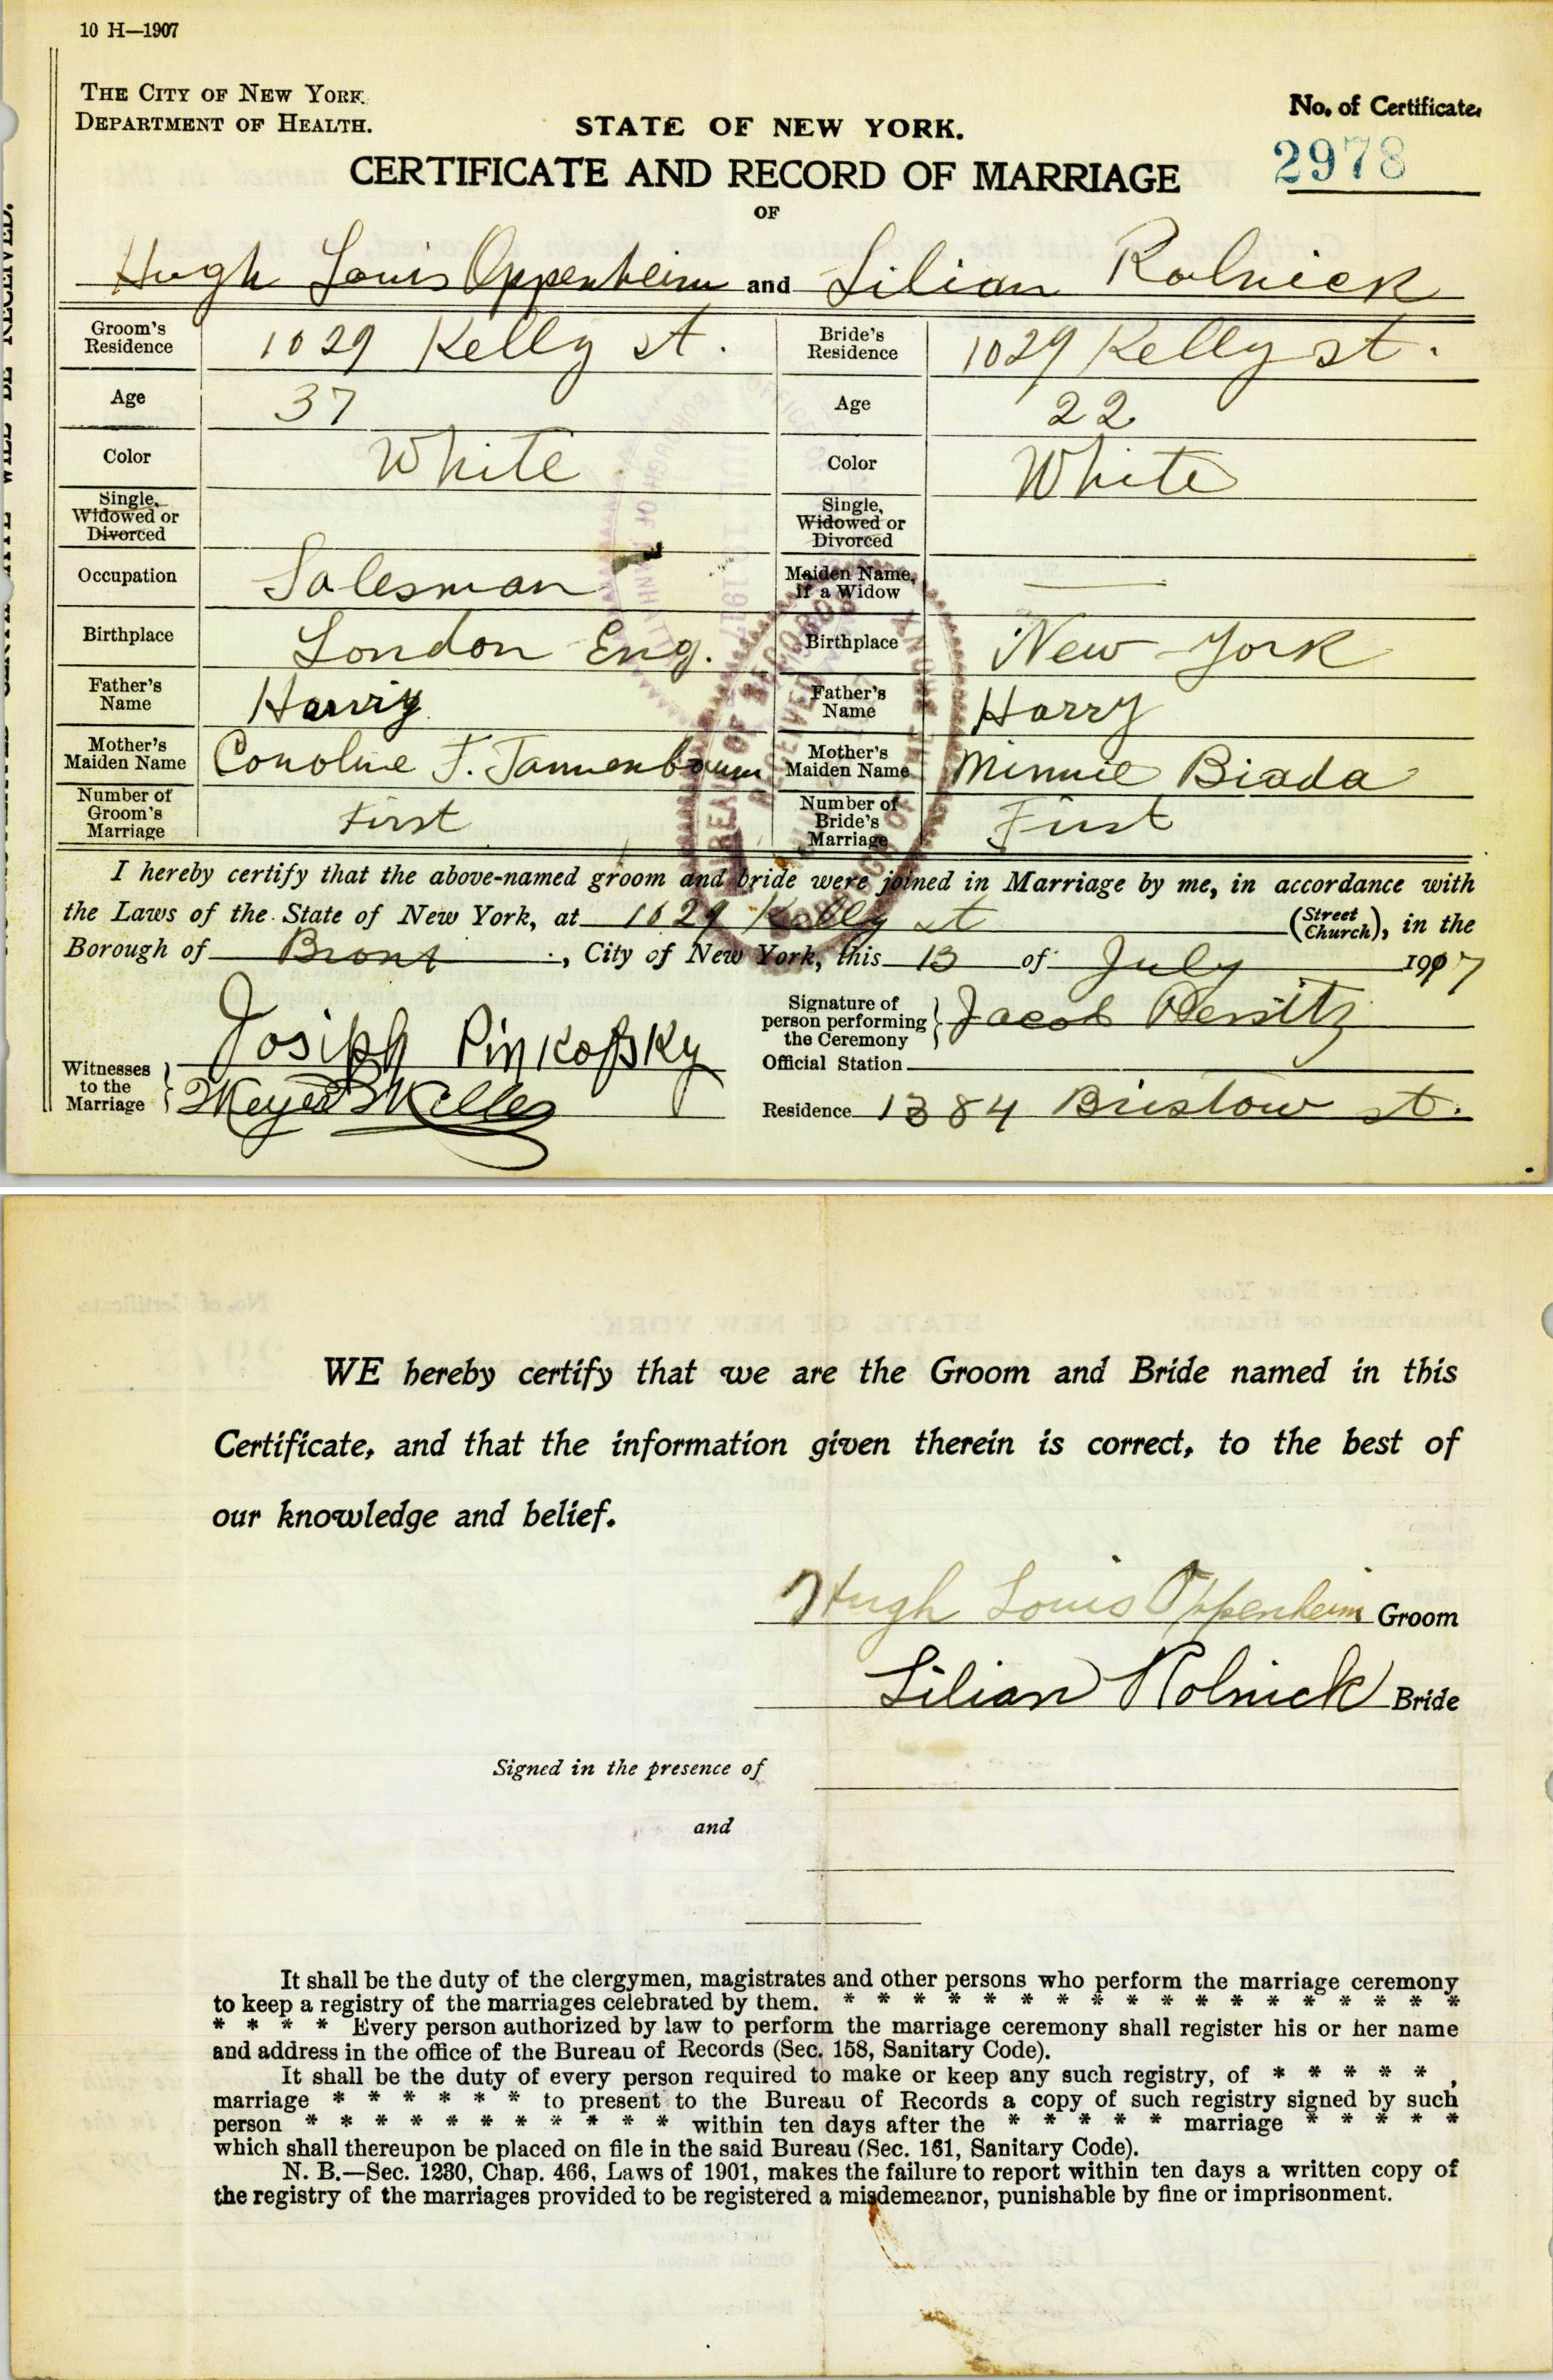 10 H—1907
THE CITY OF NEW YORK.
DEPARTMENT OF HEALTH.
STATE OF NEW YORK.
No. of Certificate.
2978
CERTIFICATE AND RECORD OF MARRIAGE
OF
Hugh Louis Oppenheim and Lilian Rolnick
Groom's Residence 1029 Kelly st. Bride's Residence 1029 Kelly st.
Age 37 Age 22
Color White Color White
Single, Widowed or Divorced Single, Widowed or Divorced
Occupation Salesman Maiden Name, if a Widow —
Birthplace London Eng. Birthplace New York
Father's Name Harry Father's Name Harry
Mother's Maiden Name Caroline F. Tannenbaum Mother's Maiden Name Minnie Biada
Number of Groom's Marriage First Number of Bride's Marriage First
I hereby certify that the above-named groom and bride were joined in Marriage by me, in accordance with
the Laws of the State of New York, at 1029 Kelly st (Street Church), in the
Borough of Bronx, City of New York, this 13 of July 1907
Signature of person performing the Ceremony Jacob
Official Station
Witnesses to the Marriage Josiph Pinkofsky
Meyer Miller
Residence 1384 Bristow st.
WE hereby certify that we are the Groom and Bride named in this
Certificate, and that the information given therein is correct, to the best of
our knowledge and belief.
Hugh Louis Oppenheim Groom
Lilian Rolnick Bride
Signed in the presence of
and
It shall be the duty of the clergymen, magistrates and other persons who perform the marriage ceremony
to keep a registry of the marriages celebrated by them. * * * * * * * * * * * * * * * * * *
* * * * Every person authorized by law to perform the marriage ceremony shall register his or her name
and address in the office of the Bureau of Records (Sec. 158, Sanitary Code).
It shall be the duty of every person required to make or keep any such registry, of * * * * * ,
marriage * * * * * * to present to the Bureau of Records a copy of such registry signed by such
person * * * * * * * * * * * within ten days after the * * * * * marriage * * * * *
which shall thereupon be placed on file in the said Bureau (Sec. 161, Sanitary Code).
N. B.—Sec. 1230, Chap. 466, Laws of 1901, makes the failure to report within ten days a written copy of
the registry of the marriages provided to be registered a misdemeanor, punishable by fine or imprisonment.